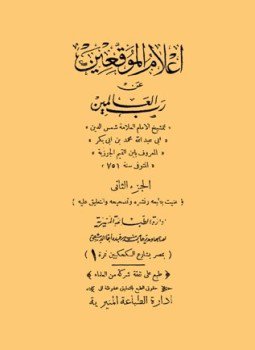 اعلام الموقعين
عن
رب العالمين
للشيخ الامام العلامة شمس الدين
ابى عبد الله محمد بن ابى بكر
المعروف بابن القيم الجوزية
المتوفى سنة ٧٥١
الجزء الثانى
( عنيت بطبعه ونشره وتصحيحه والتعليق عليه )
ادارة الطباعة المنيرية
( بمصر بشارع الكحكيين نمرة ١ )
طبع على نفقة شركة من العلماء
حقوق الطبع محفوظة الى
ادارة الطباعة المنيرية